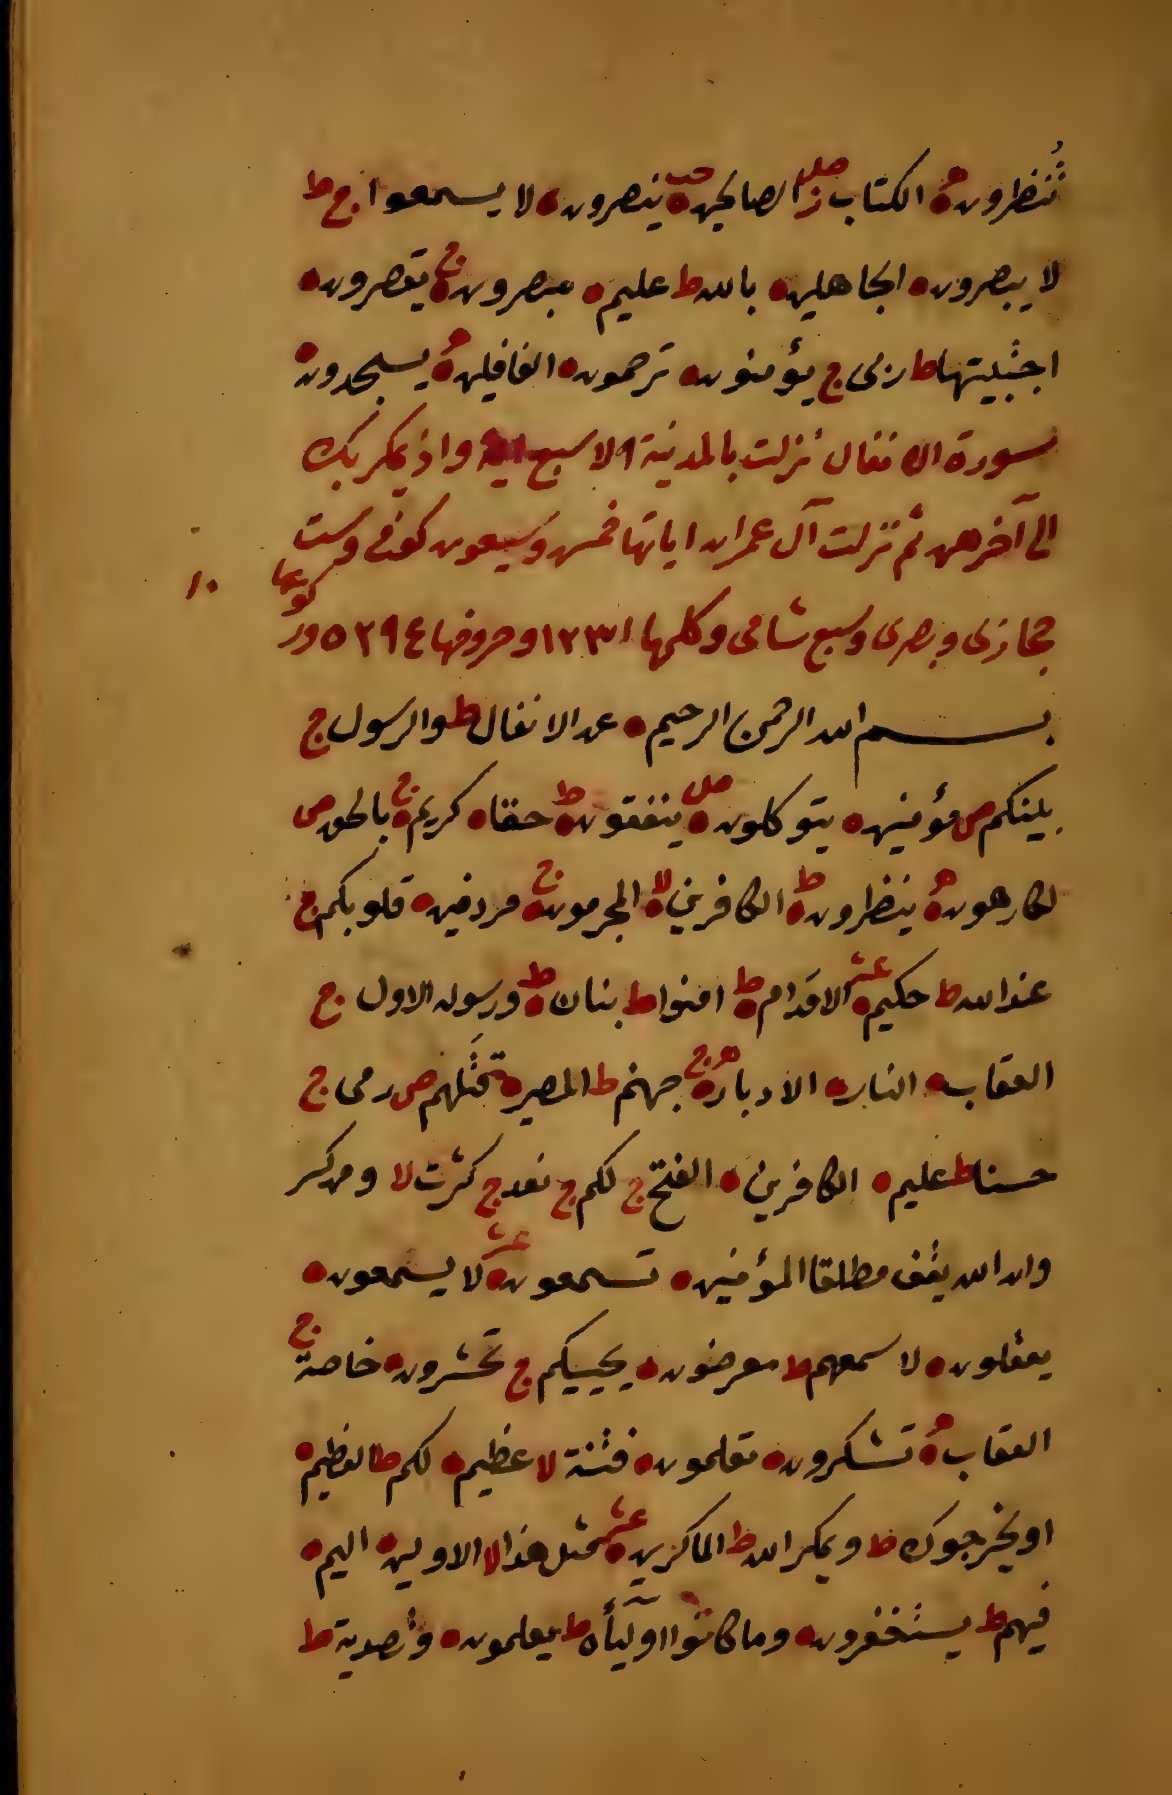 تُنظرون ه الكتاب ز صلى الصالحين ه ينصرون ه لا يسمعوا ج ط
لا يبصرون ه الجاهلين ه بالله ط عليم ه مبصرون ه ج يقصرون ه
اجتبيتها ط ربى ج يؤمنون ه ترحمون ه الغافلين ه يسجدون ه
سورة الانفال نزلت بالمدينة الا سبع واذ يمكر بك
الى آخرهن ثم نزلت آل عمران اياتها خمس وسبعون كوفى وست
حجازى وبصرى وسبع شامى وكلمها ١٢٣١ وحروفها ٥٢٩٤
١٠
بسم الله الرحمن الرحيم ه عن الانفال ط والرسول ج
بينكم ص مؤمنين ه يتوكلون ه صلى ينفقون ه ط حقا ه كريم ه ج بالحق ص
لكارهون ه ينظرون ه ط الكافرين ه لا المجرمون ه ج مردفين ه قلوبكم ج
عند الله ط حكيم ه عشر الاقدام ه ط امنوا ط بنان ه ط ورسوله الاول ج
العقاب ه النار ه الادبار ه ج جهنم ط المصير ه قتلهم ص رمى ج
حسنا ط عليم ه الكافرين ه الفتح ج لكم ج نعد ج كثرت لا ومن كسر
وان الله يقف مطلقا المؤمنين ه تسمعون ه عشر لا يسمعون ه
يعقلون ه لاسمعهم ط معرضون ه يحييكم ج تحشرون ه خاصة ج
العقاب ه تشكرون ه تعلمون ه فتنة لا عظيم ه لكم ط العظيم ه
او يخرجوك ط ويمكر الله ط الماكرين ه عشر مثل هذا لا الاولين ه اليم ه
فيهم ط يستغفرون ه وما كانوا اولياه ط يعلمون ه وتصدية ط